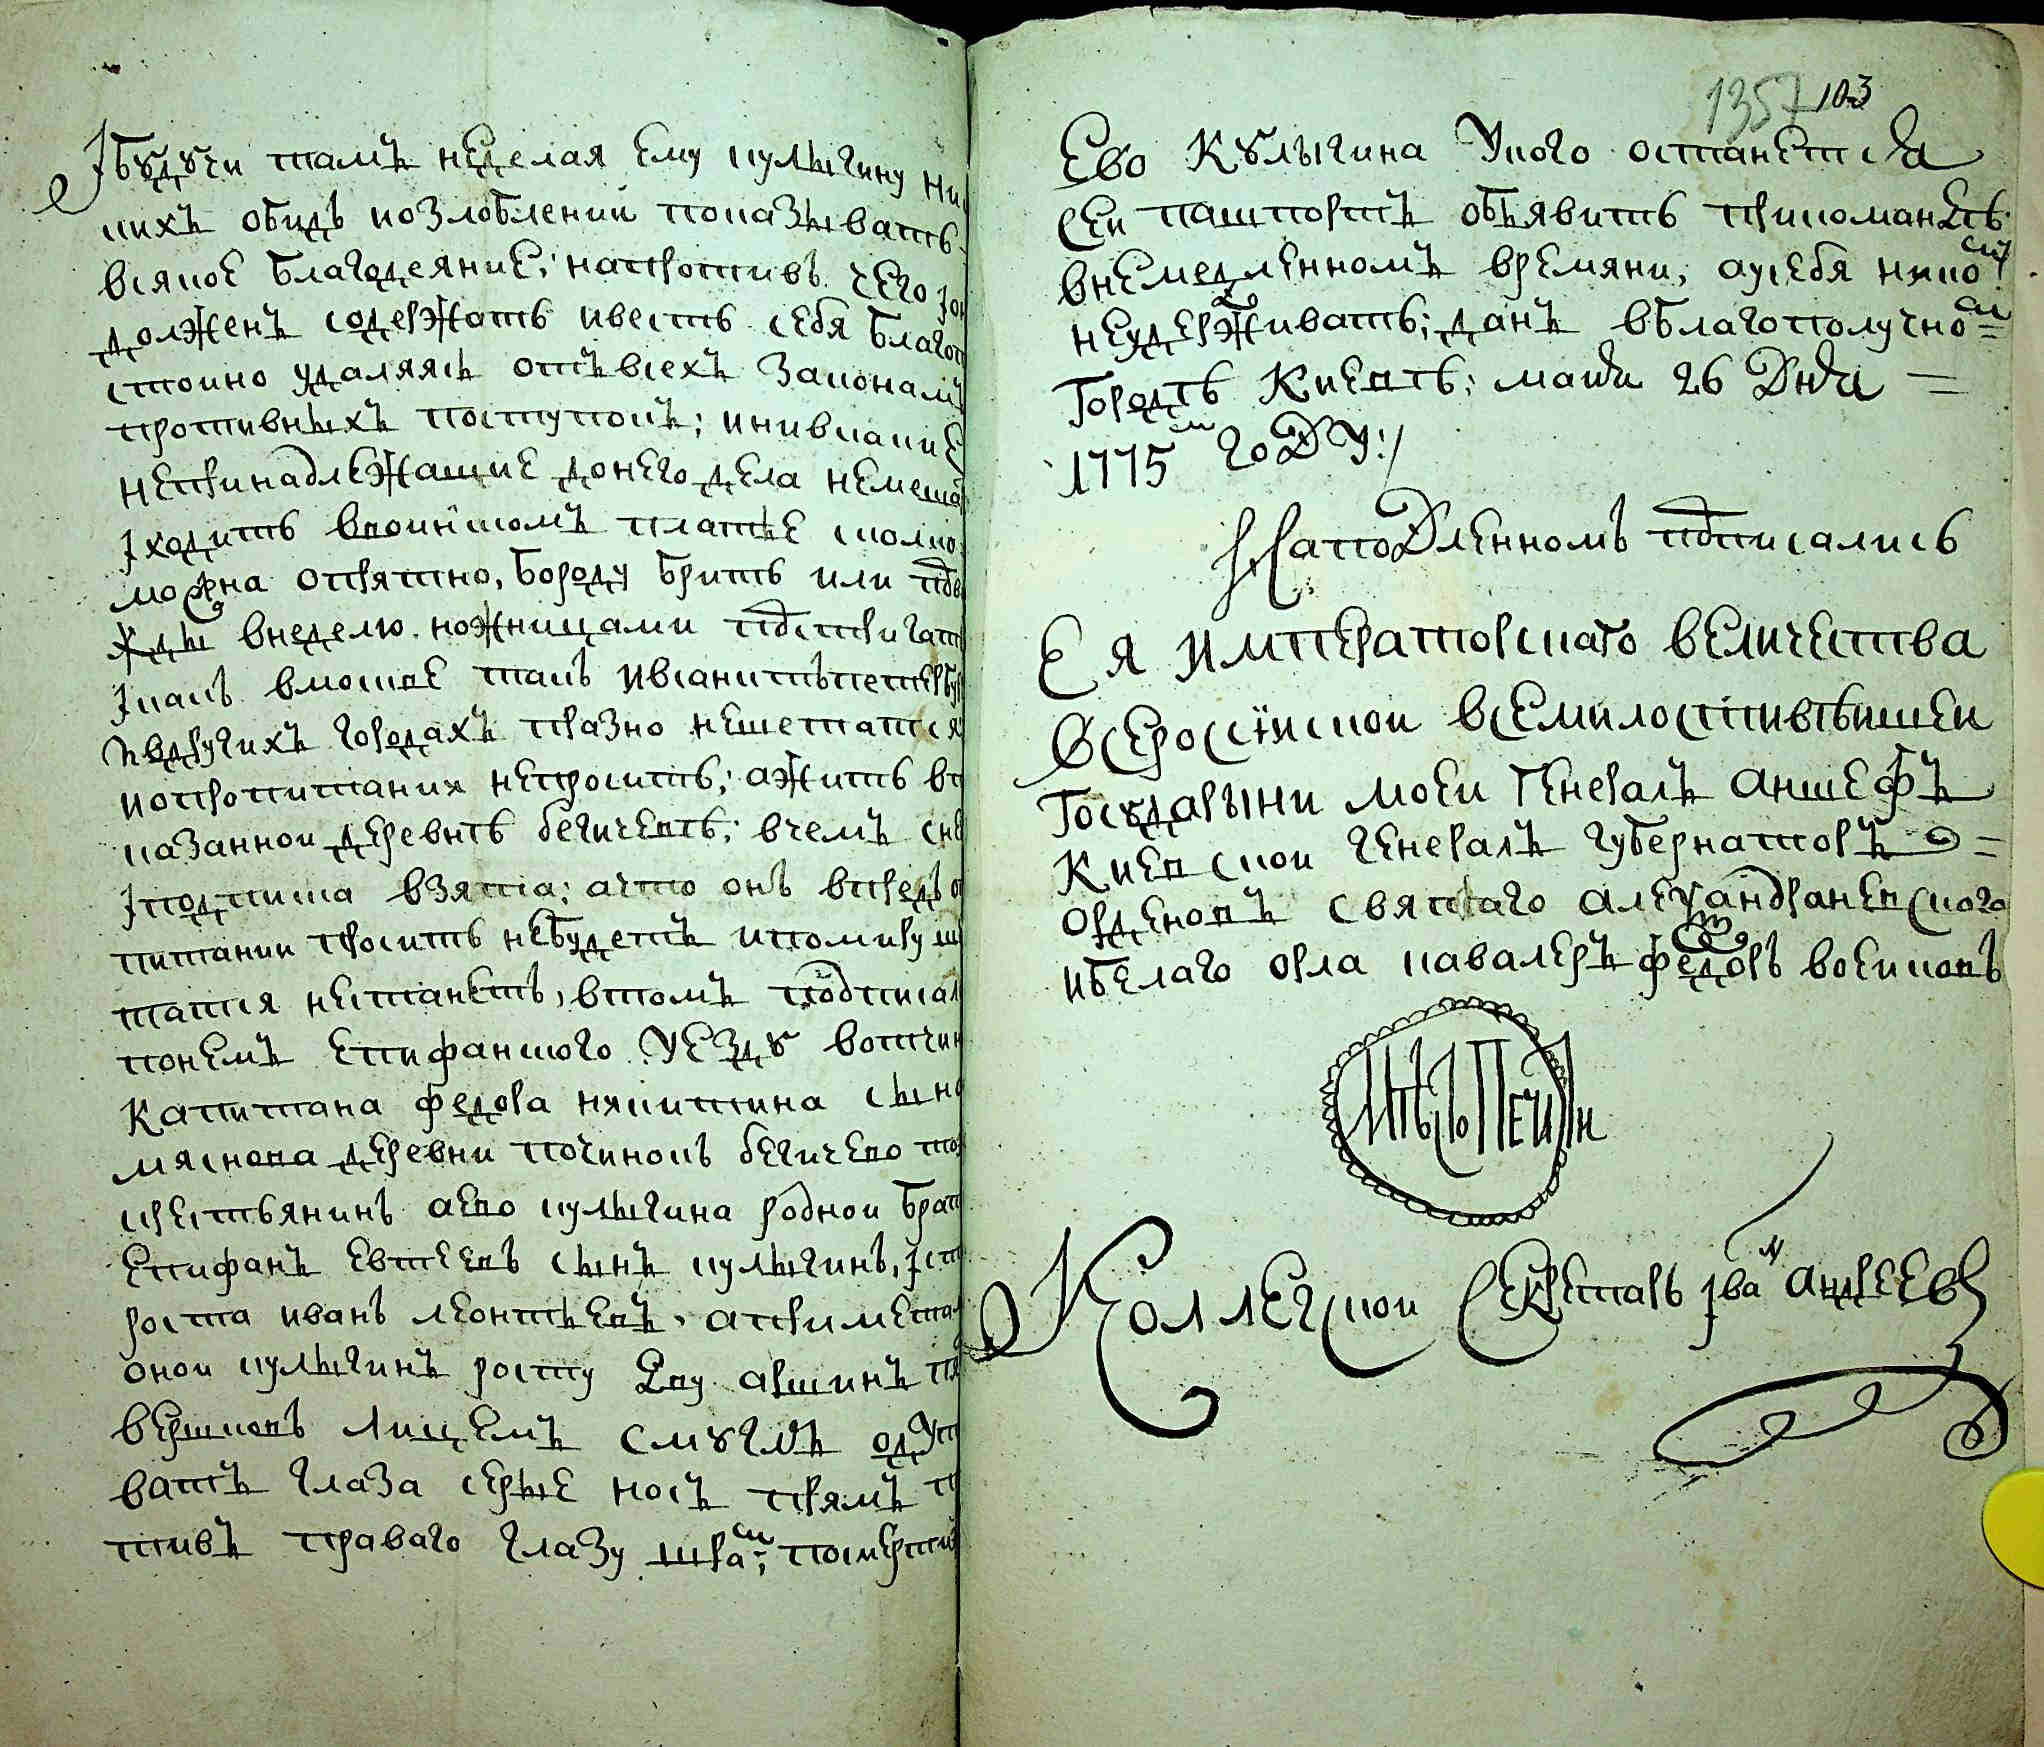 Ібудучи тамъ неделая ему кулыгину ни
кихъ обидъ иозлоблении показывать
всякое благодеяние, напротивъ чего іон
долженъ содержать ивесть себя благоп
стоино удаляяся отъвсехъ законамъ
противныхъ поступокъ; инивкакие
непринадлежащие донего дела немеша
іходить впоиншомъ платье сколко
можна опрятно, бороду брить или пов
жды внеделю ножницами подстригат
ікакъ вмоскве такъ ивсанктъпетербур
ивдругихъ городахъ празно нешетатся
ипропитания непросить; ажить вп
казаннои деревнѣ бегичевѣ; вчемъ сне
іподписка взята; ачто онъ впредь о
питании просить небудетъ ипомиру ш
татся нестанетъ, втомъ подписал
понемъ епифаншого уезду вотчин
капитана федора никитина сына
мяснова деревни починокъ бегичево тож
крестьянинъ аево кулыгина роднои брат
Епифанъ Евтеевъ сынъ кулыгинъ, іст
роста иванъ леонтьевъ, апримета
онои кулыгинъ росту 2ву аршинъ пя
вершковъ лицемъ смуглъ одут
ватъ глаза серые носъ прямъ п
тивъ праваго глазу шрамъ; посмерти
1357 103
Ево Кулыгина Укого останется
Сеи пашпортъ объявить прикоманде
внемедленномъ времяни, ауебя никомъ
неудерживать; данъ вблагополучномъ =
городѣ Киевѣ; маия 26 Дня =
1775м году:/
Наподленномъ подписались
Ея императорскаго величества
Всероссіискои всемилостивѣишеи
Государыни моеи генералъ аншефъ
Киевскои генералъ губернаторъ =
орденовъ святаго александраневского
ибелаго орла кавалеръ федоръ воеиковъ
Мѣсто Печати
Коллегскои Секретарь іва н андреевъ